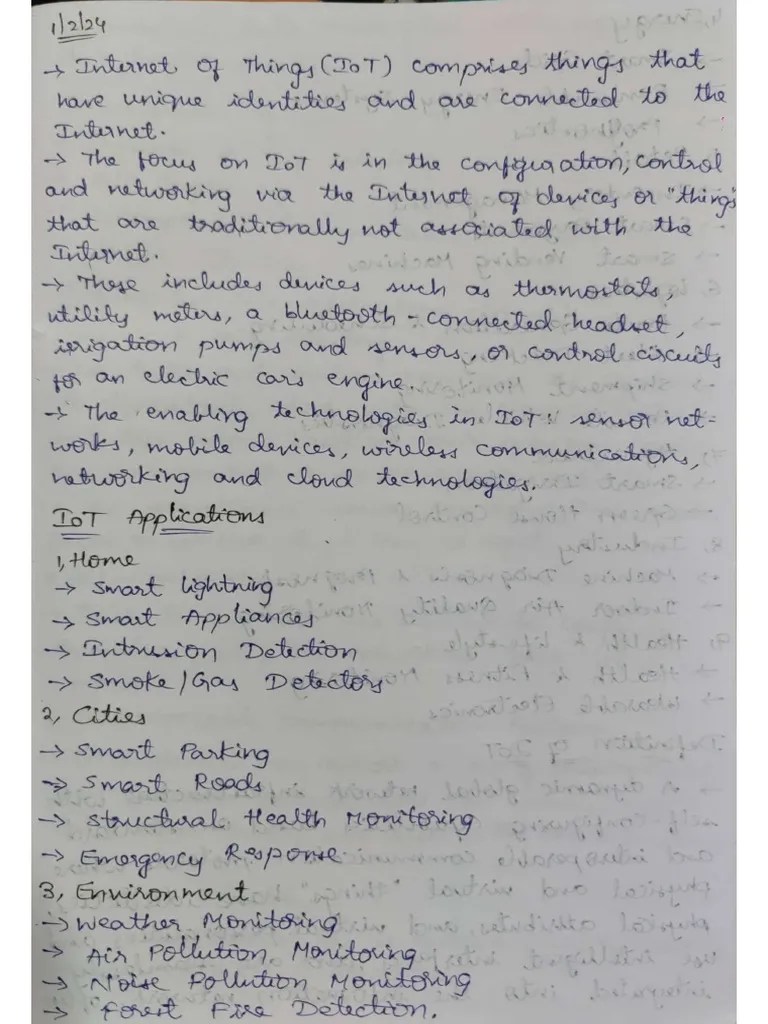 1/2/24
→ Internet of Things (IoT) comprises things that
have unique identities and are connected to the
Internet.
→ The focus on IoT is in the configuration, control
and networking via the Internet of devices or "things"
that are traditionally not associated with the
Internet.
→ These includes devices such as thermostats,
utility meters, a bluetooth-connected headset,
irrigation pumps and sensors, or control circuits
for an electric car's engine.
→ The enabling technologies in IoT: sensor net-
works, mobile devices, wireless communications,
networking and cloud technologies.
IoT Applications
1, Home
→ Smart lightning
→ Smart Appliances
→ Intrusion Detection
→ Smoke/Gas Detectors
2, Cities
→ Smart Parking
→ Smart Roads
→ Structural Health Monitoring
→ Emergency Response
3, Environment
→ Weather Monitoring
→ Air Pollution Monitoring
→ Noise Pollution Monitoring
→ Forest Fire Detection.